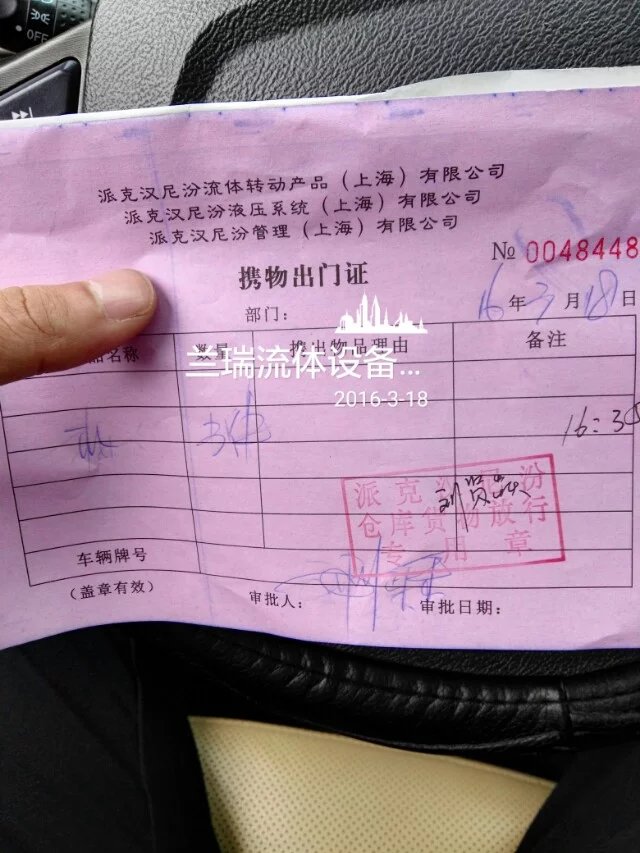 OFF
派克汉尼汾流体转动产品（上海）有限公司
派克汉尼汾液压系统（上海）有限公司
派克汉尼汾管理（上海）有限公司
№ 0048448
携物出门证
部门：
16年3月18日
品名称 数量 携出物品理由 备注
兰瑞流体设备...
2016-3-18
16:30
派克汉尼汾
仓库货物放行
专用章
车辆牌号
（盖章有效）
审批人：
审批日期：